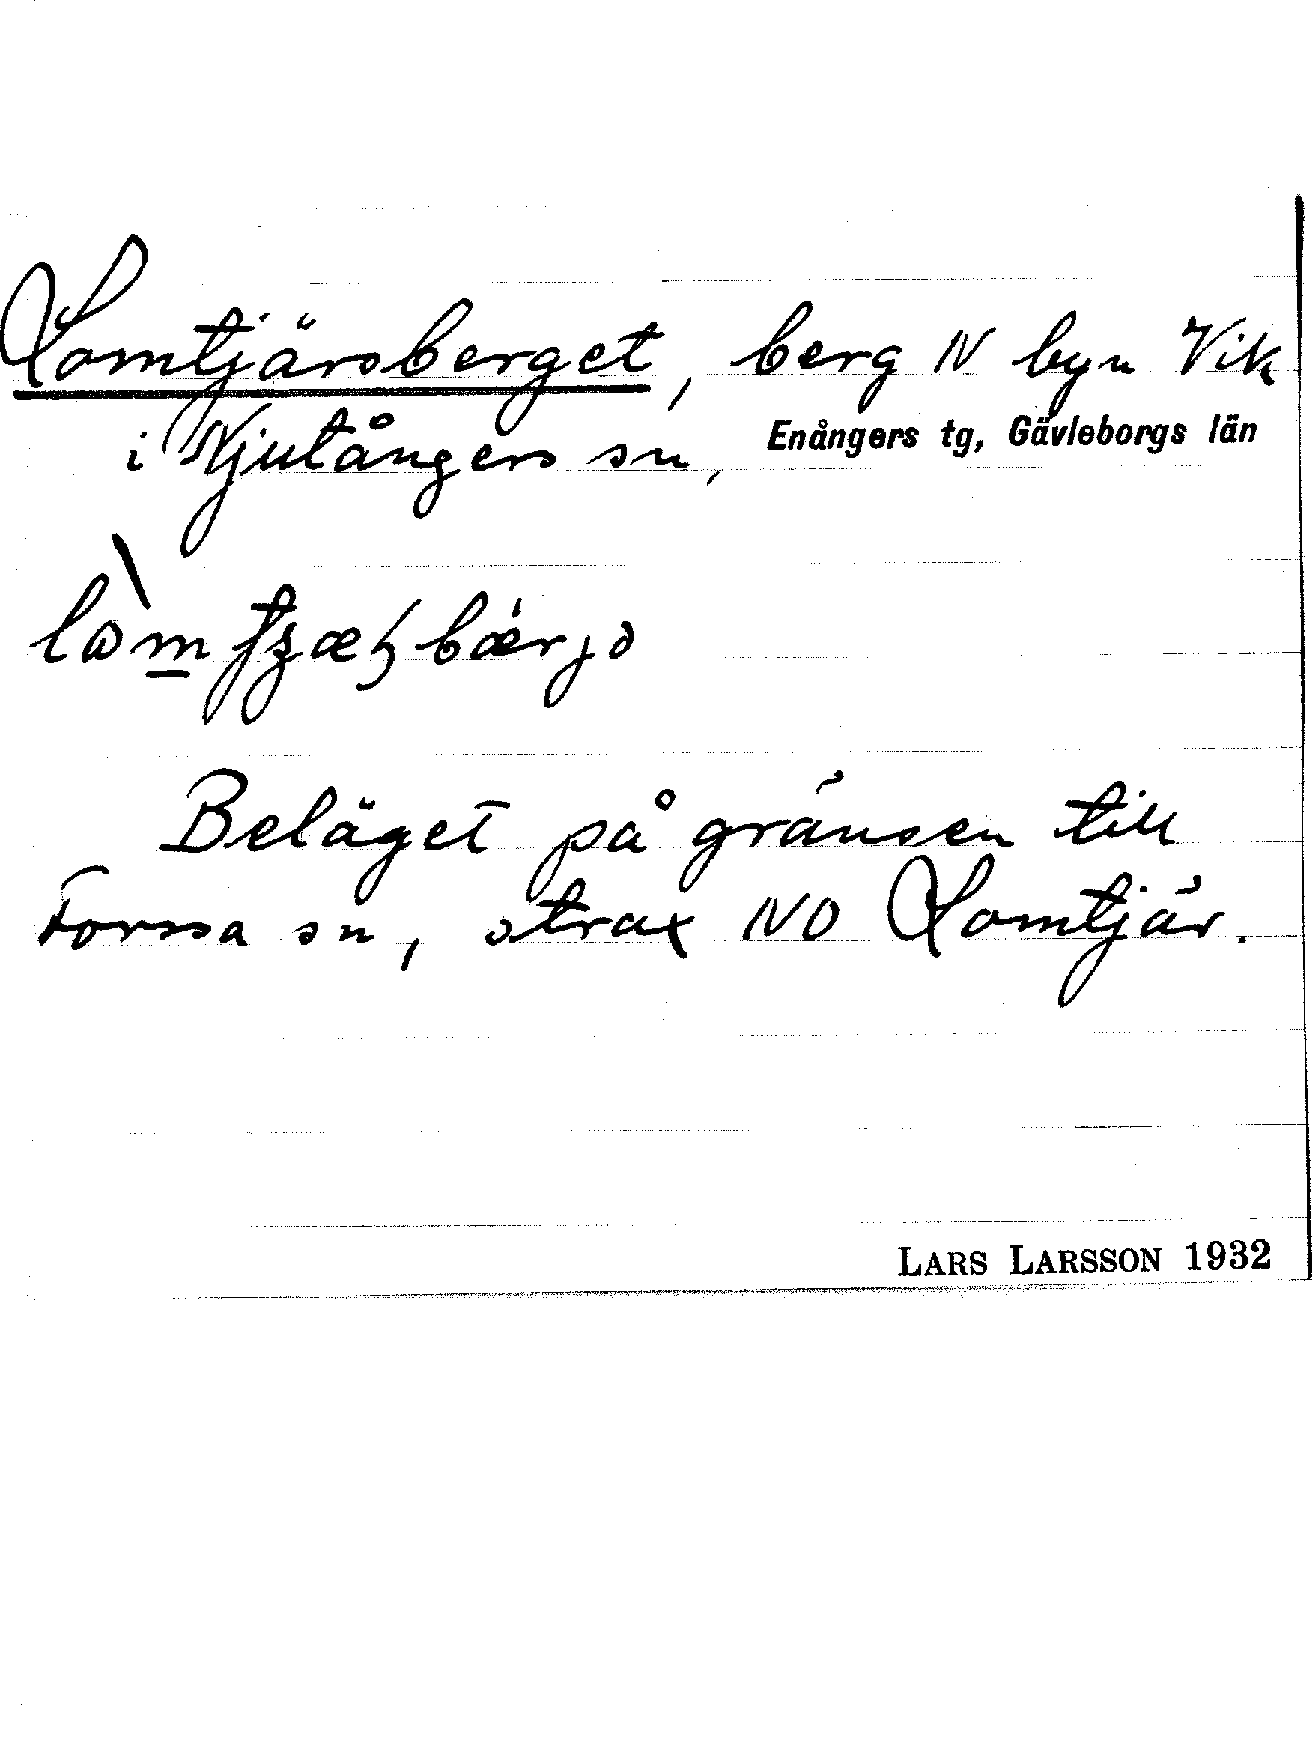 Lomtjärsberget, berg N byn Vik
i Njutångers sn, Enångers tg, Gävleborgs län
Beläget på gränsen till
Forssa sn, strax NO Lomtjär.
LARS LARSSON 1932